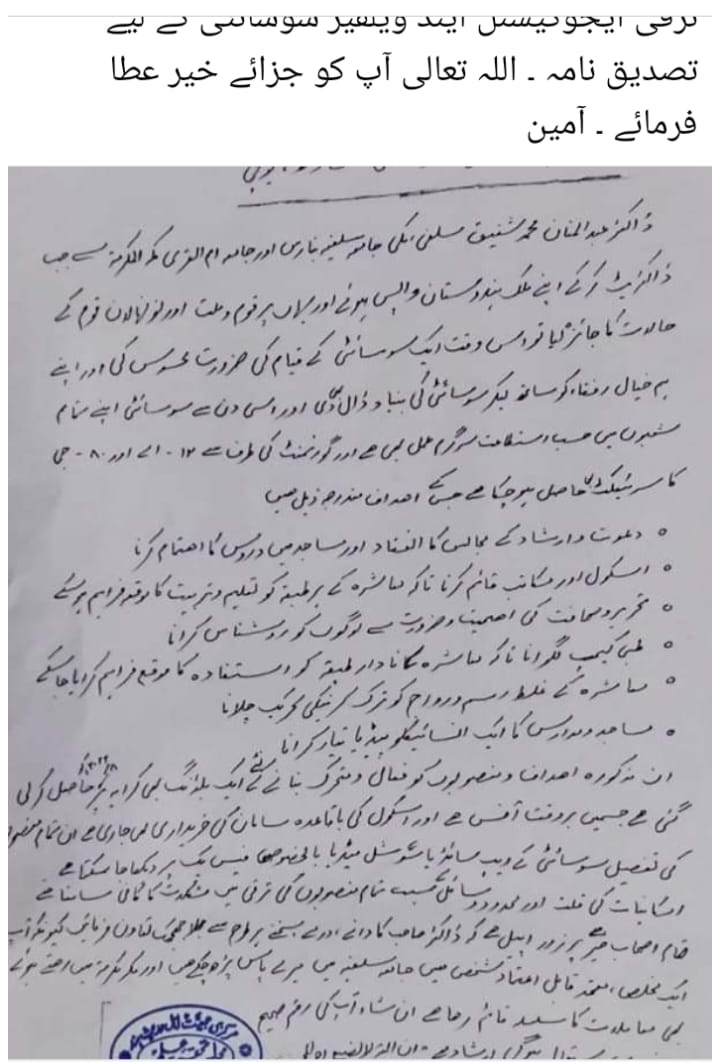 ترقی ایجوکیشنل اینڈ ویلفیر سوسائٹی کے لیے
تصدیق نامہ ۔ اللہ تعالی آپ کو جزائے خیر عطا
فرمائے ۔ آمین
ڈاکٹر عبدالمنان محمد شفیق سلفی مکی جامعہ سلفیہ بنارس اور جامعہ ام القری مکہ المکرمۃ سے جب
ڈاکٹریٹ کرکے اپنے ملک ہندوستان واپس ہوئے اور یہاں پر قوم وملت اور نونہالان قوم کے
حالات کا جائزہ لیا تو اس وقت ایک سوسائٹی کے قیام کی ضرورت محسوس کی اور اپنے
ہم خیال رفقاء کو ساتھ لیکر سوسائٹی کی بنیاد ڈال دی اور اسی دن سے سوسائٹی اپنے تمام
شعبوں میں حسب استطاعت سرگرم عمل بھی ہے اور گورنمنٹ کی طرف سے ۱۲ - اے اور ۸۰ - جی
کا سرٹیفکٹ بھی حاصل ہو چکا ہے جس کے اهداف مندرجہ ذیل ہیں
• دعوت وارشاد کے مجالس کا انعقاد اور مساجد میں دروس کا اهتمام کرنا
• اسکول اور مکاتب قائم کرنا تاکہ معاشرہ کے ہر طبقہ کو تعلیم وتربیت کا موقعہ فراہم ہو سکے
• تحریر وصحافت کی اهمیت وضرورت سے لوگوں کو روشناس کرانا
• طبی کیمپ لگوانا تاکہ معاشرہ کا نادار طبقہ کو استفادہ کا موقع فراہم کرایا جاسکے
• معاشرہ کے غلط رسم ورواج کو ترک کرنیکی تحریک چلانا
• مساجد ومدارس کا ایک انسائیکلو پیڈیا تیار کرانا
ان مذکورہ اهداف ومنصوبوں کو فعال ومتحرک بنانے کے لئے ایک بلڈنگ بھی کرایہ پر حاصل کر لی
گئی ہے جسمیں بروقت آفس ہے اور اسکول کی باقاعدہ سامان کی خریداری بھی جاری ہے ان تمام
کی تفصیل سوسائٹی کے ویب سائٹ یا سوشل میڈیا بالخصوص فیس بک پر دیکھا جا سکتا ہے
امکانیات کی قلت اور محدود وسائل کیسبب تمام منصوبوں کی ترقی میں مشکلات کا کافی سامنا ہے
تمام اصحاب خیر پر زور اپیل ہے کہ ڈاکٹر صاحب کا دامے درمے سخنے ہر طرح سے تعاون فرمائیں کیونکہ آپ
ایک مخلص، معتمد قابل اعتماد شخص ہیں جامعہ سلفیہ میں میرے پاس پڑھ چکے ہیں اور مکہ مکرمۃ میں رہتے ہوئے
بھی معاملات کا سلسلہ قائم رہا ہے ان شاء اللہ آپ کی رقم صحیح